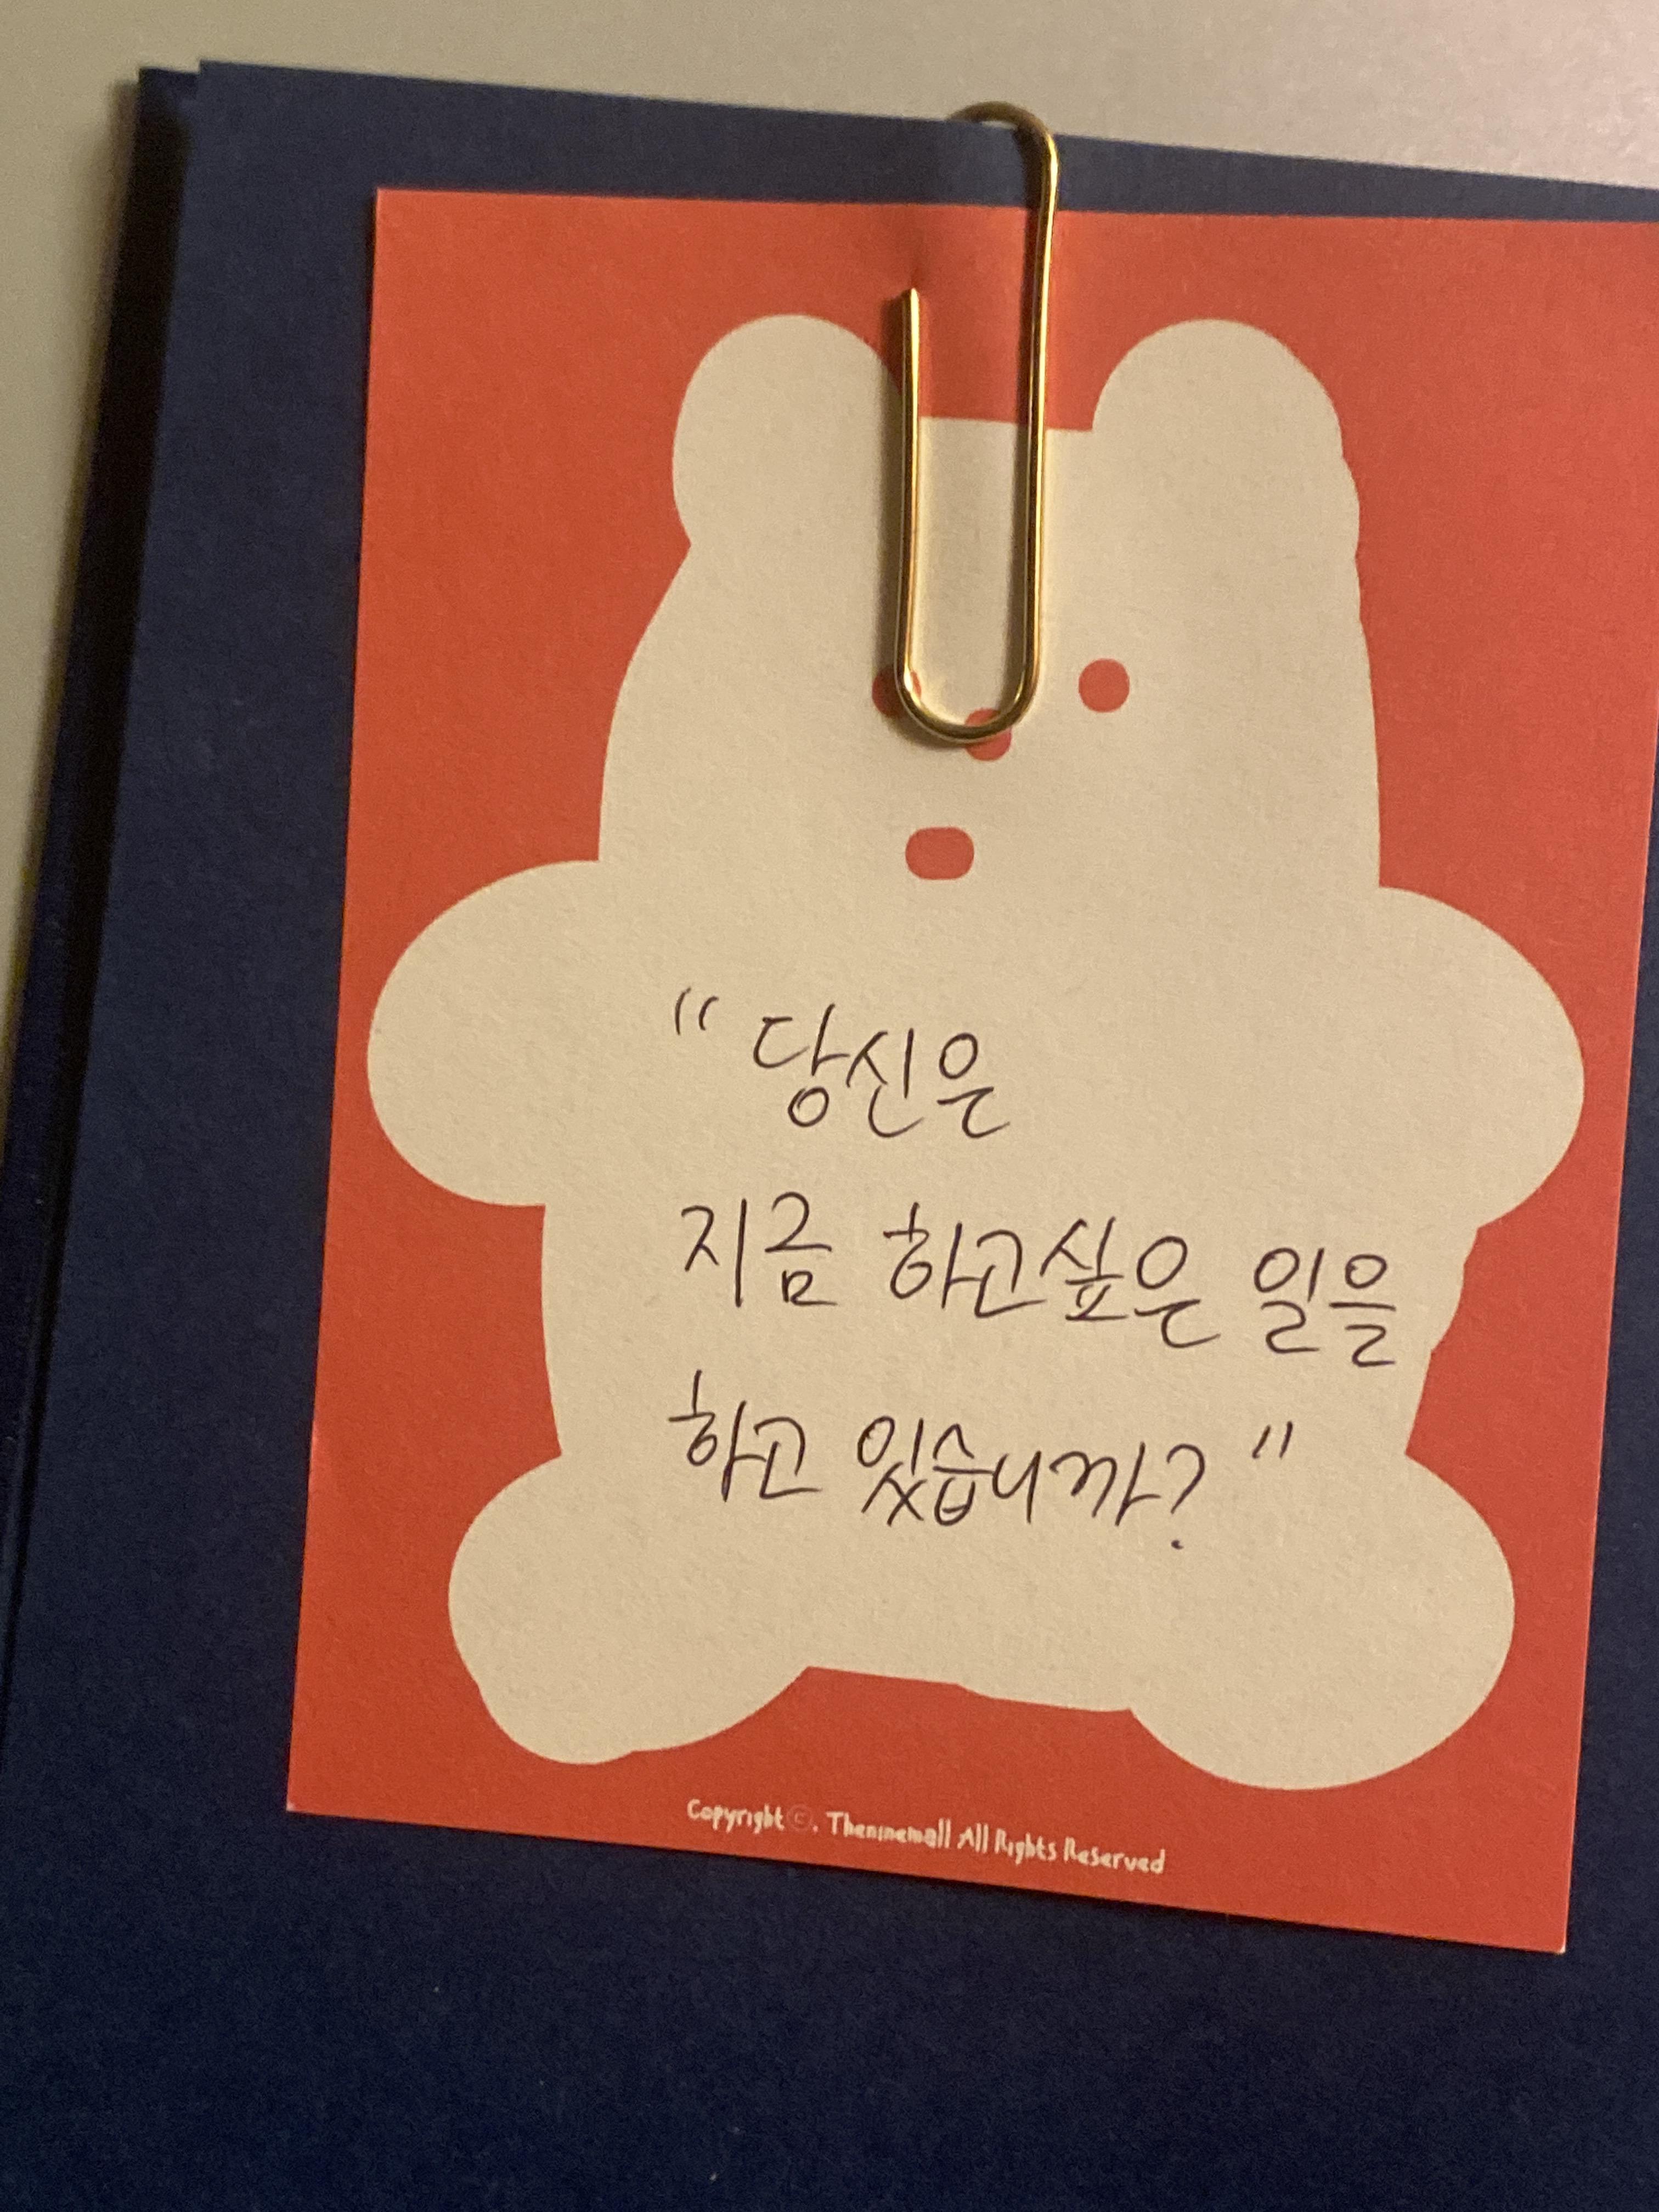 "당신은
지금 하고싶은 일을
하고 있습니까?"
Copyright ⓒ. Theninemall All Rights Reserved